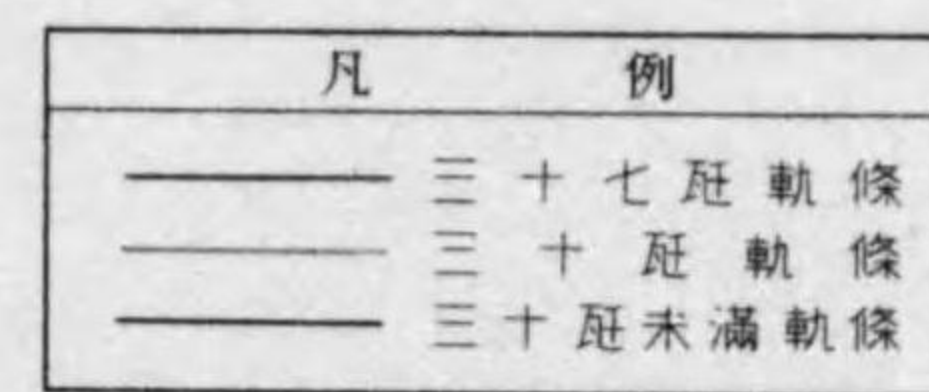 凡例
三十七瓩軌條
三十瓩軌條
三十瓩未滿軌條